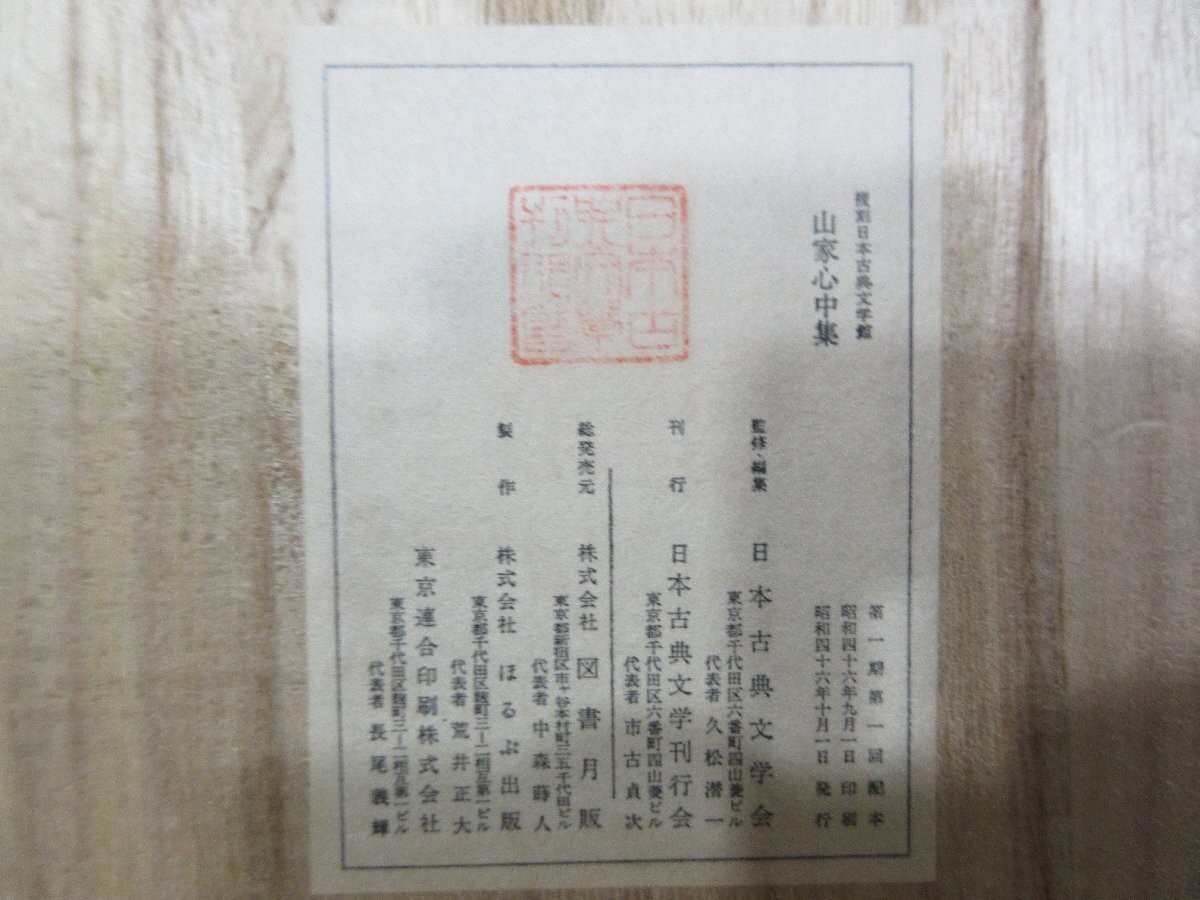 複刻日本古典文学館
山家心中集
第一期第一回配本
昭和四十六年九月一日 印刷
昭和四十六年十月一日 発行
監修・編集 日本古典文学会
東京都千代田区六番町四山菱ビル
代表者 久松潜一
刊行 日本古典文学刊行会
東京都千代田区六番町四山菱ビル
代表者 市古貞次
総発売元 株式会社 図書月販
東京都新宿区市ヶ谷本村町三五千代田ビル
代表者 中森蒔人
製作 株式会社 ほるぷ出版
東京都千代田区麹町三ー二相互第一ビル
代表者 荒井正大
東京連合印刷株式会社
東京都千代田区麹町三ー二相互第一ビル
代表者 長尾義輝